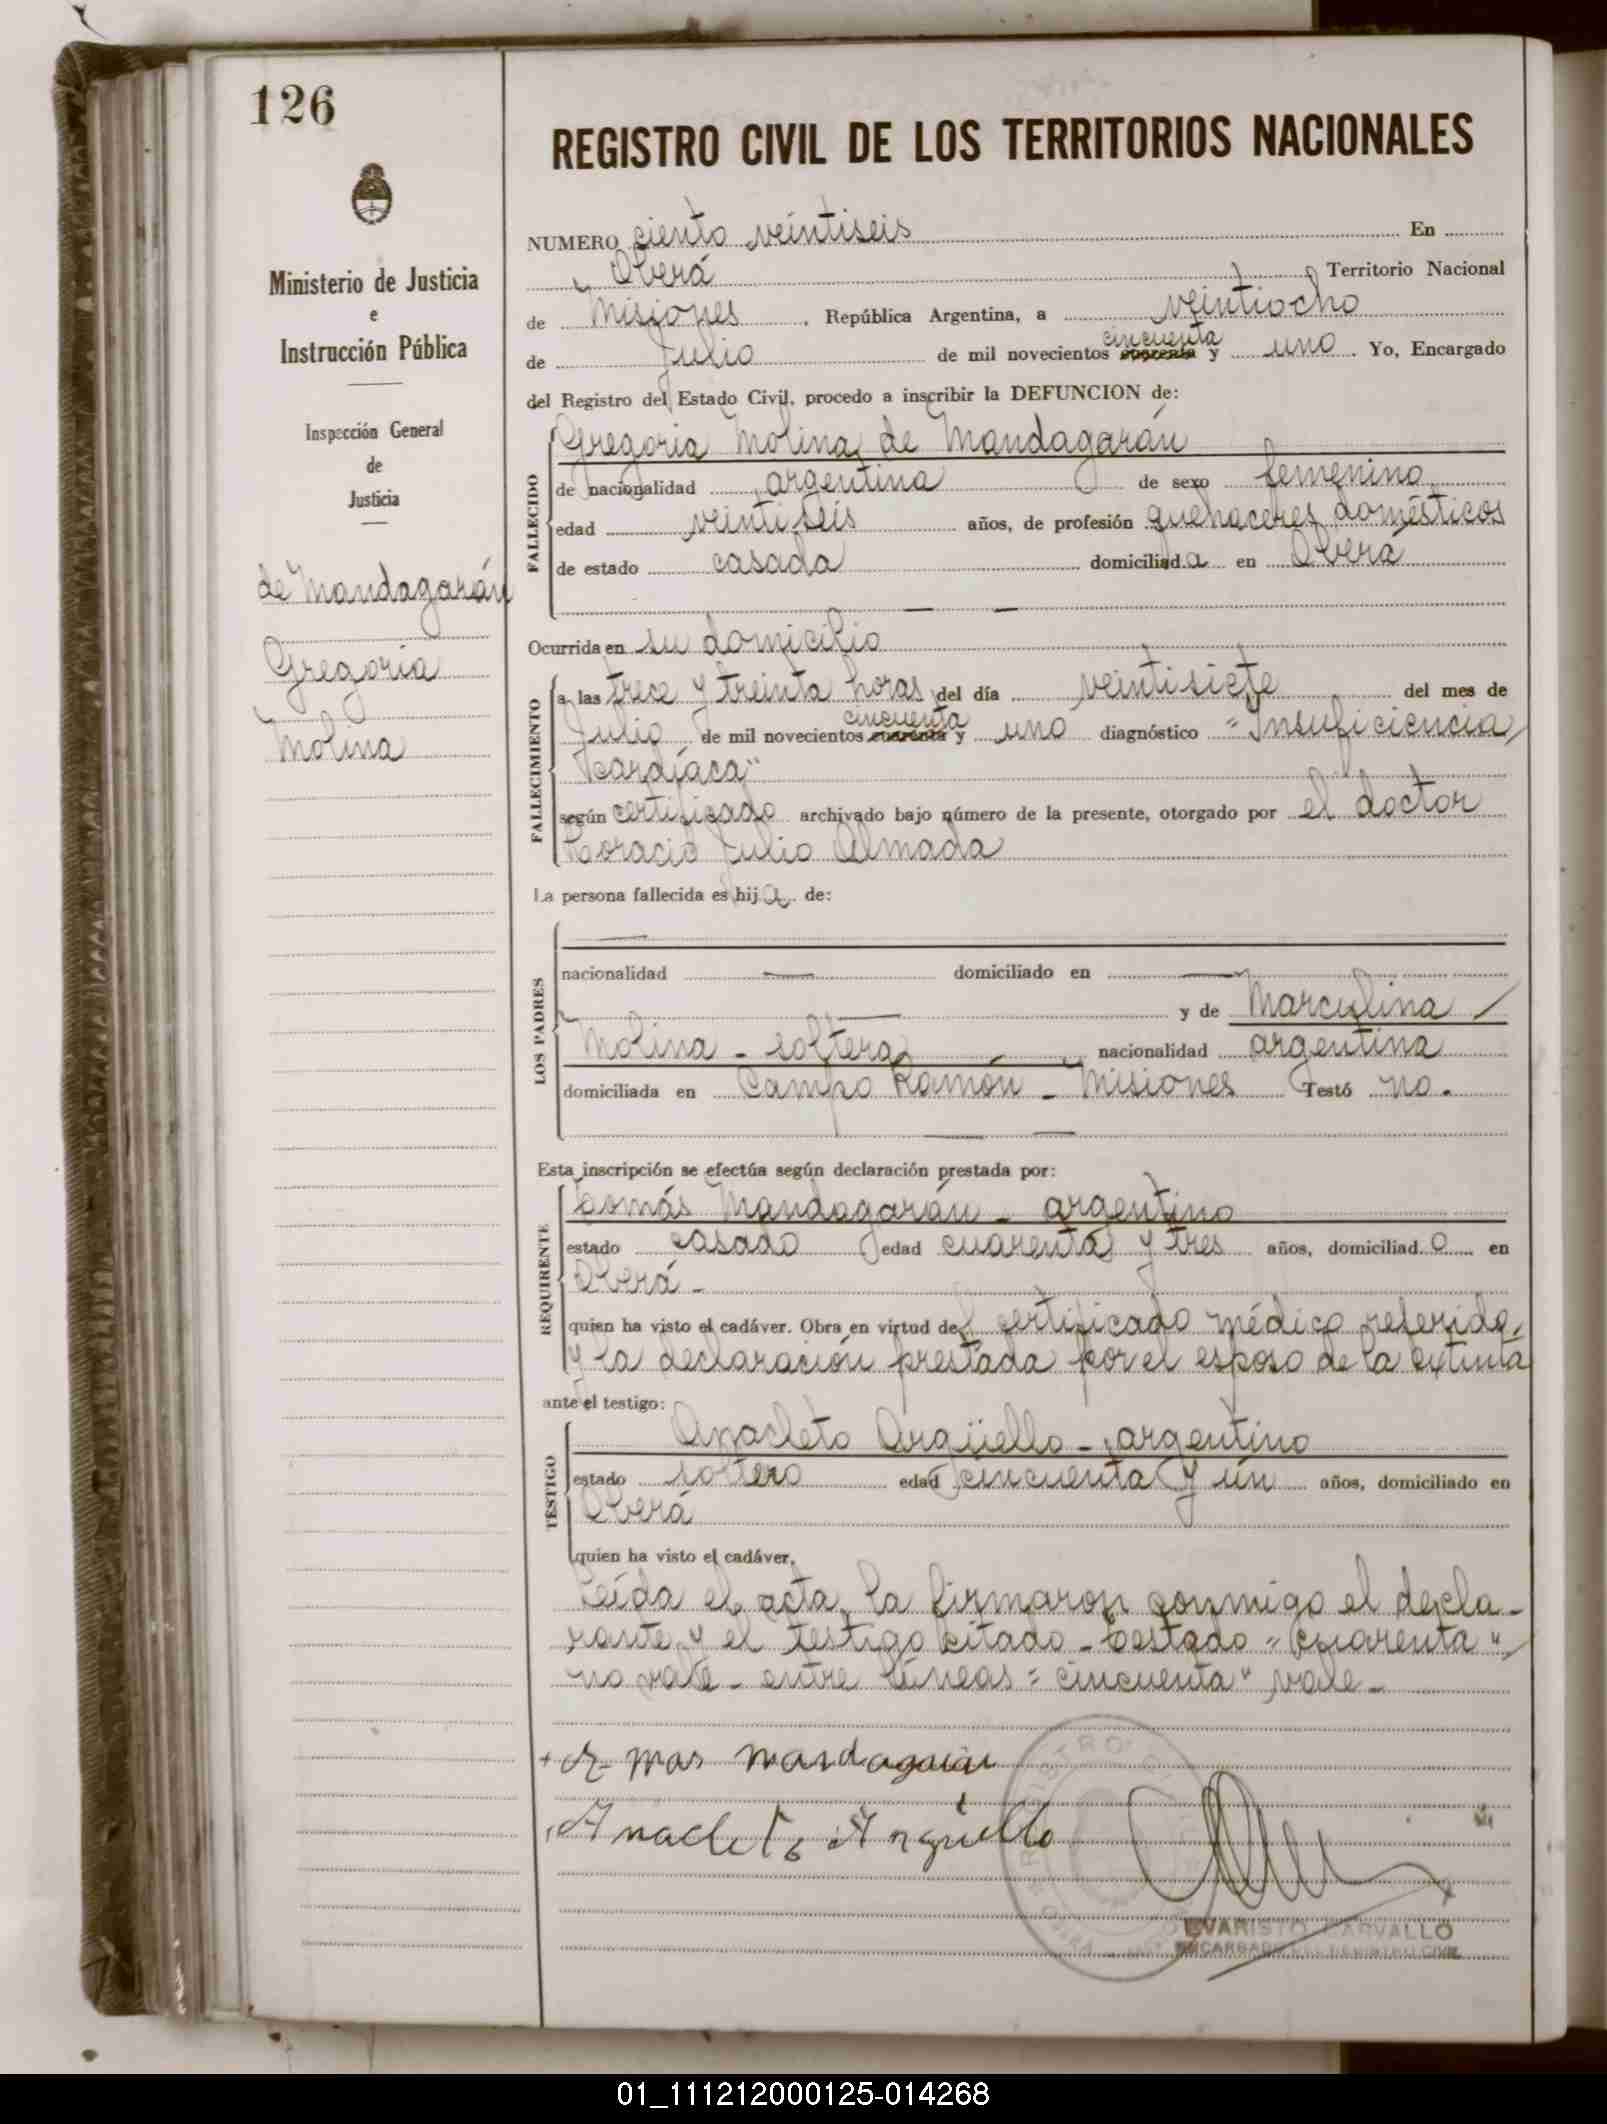 126
REGISTRO CIVIL DE LOS TERRITORIOS NACIONALES
Ministerio de Justicia
e
Instrucción Pública
Inspección General
de
Justicia
de Mandagarán
Gregoria
Molina
NUMERO ciento veintiseis En
Oberá Territorio Nacional
de Misiones, República Argentina, a veintiocho
cincuenta
de Julio de mil novecientos cuarenta y uno. Yo, Encargado
del Registro del Estado Civil, procedo a inscribir la DEFUNCION de:
FALLECIDO
Gregoria Molina de Mandagarán
de nacionalidad argentina de sexo femenino
edad veintiseis años, de profesión quehaceres domésticos
de estado casada domiciliada en Oberá
Ocurrida en su domicilio
FALLECIMIENTO
a las trece y treinta horas del día veintisiete del mes de
cincuenta
Julio de mil novecientos cuarenta y uno diagnóstico "Insuficiencia
Cardíaca"
según certificado archivado bajo número de la presente, otorgado por el doctor
Horacio Julio Almada
La persona fallecida es hija de:
LOS PADRES
nacionalidad — domiciliado en —
— y de Marculina
Molina - soltera nacionalidad argentina
domiciliada en Campo Ramón - Misiones Testó no.
Esta inscripción se efectúa según declaración prestada por:
REQUIRENTE
Tomás Mandagarán - argentino
estado casado edad cuarenta y tres años, domiciliado en
Oberá -
quien ha visto el cadáver. Obra en virtud del certificado médico referido,
y la declaración prestada por el esposo de la extinta
ante el testigo:
TESTIGO
Anacleto Argüello - argentino
estado soltero edad cincuenta y un años, domiciliado en
Oberá
quien ha visto el cadáver.
Leída el acta, la firmaron conmigo el decla-
rante y el testigo citado - Testado "cuarenta"
no vale - entre líneas = cincuenta" vale -
mas mandagarán
Anacleto Arguello
REGISTRO CIVIL
EVARISTO CARVALLO
ENCARGADO DEL REGISTRO CIVIL
01_111212000125-014268